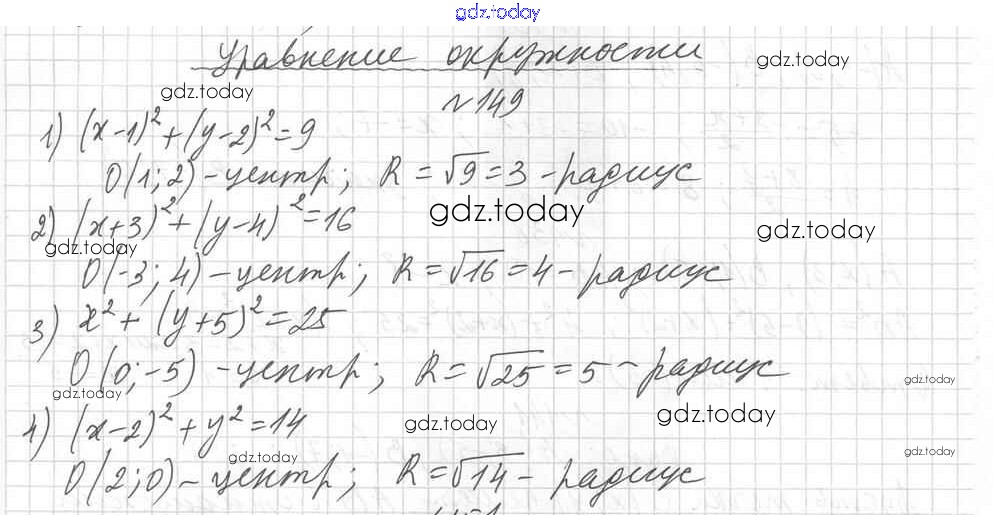 gdz.today
Уравнение окружности
gdz.today
gdz.today
№149
1) (x-1)²+(y-2)²=9
O(1;2)-центр; R=√9=3-радиус
gdz.today
2) (x+3)²+(y-4)²=16
gdz.today
gdz.today
O(-3;4)-центр; R=√16=4-радиус
3) x²+(y+5)²=25
O(0;-5)-центр; R=√25=5-радиус
gdz.today
gdz.today
4) (x-2)²+y²=14
gdz.today
gdz.today
gdz.today
gdz.today
O(2;0)-центр; R=√14-радиус